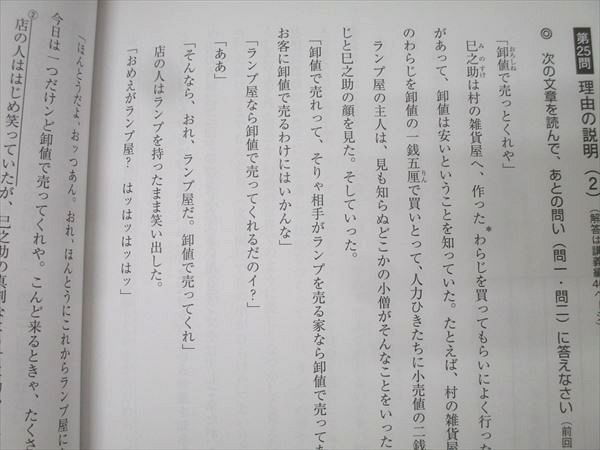 第25問 理由の説明（2）（解答は講義編4
◎ 次の文章を読んで、あとの問い（問一・問二）に答えなさい（前回
「卸値で売っとくれや」
巳之助は村の雑貨屋へ、作った＊わらじを買ってもらいによく行った
があって、卸値は安いということを知っていた。たとえば、村の雑貨屋
のわらじを卸値の一銭五厘で買いとって、人力ひきたちに小売値の二銭
ランプ屋の主人は、見も知らぬどこかの小僧がそんなことをいった
じと巳之助の顔を見た。そしていった。
「卸値で売れって、そりゃ相手がランプを売る家なら卸値で売って
お客に卸値で売るわけにはいかんな」
「ランプ屋なら卸値で売ってくれるだのイ？」
「ああ」
「そんなら、おれ、ランプ屋だ。卸値で売ってくれ」
店の人はランプを持ったまま笑い出した。
「おめえがランプ屋？ はッはッはッはッ」
「ほんとうだよ、おッつあん。おれ、ほんとうにこれからランプ屋に
今日は一つだけンど卸値で売ってくれや。こんど来るときゃ、たくさ
②店の人ははじめ笑っていたが、巳之助の真剣な